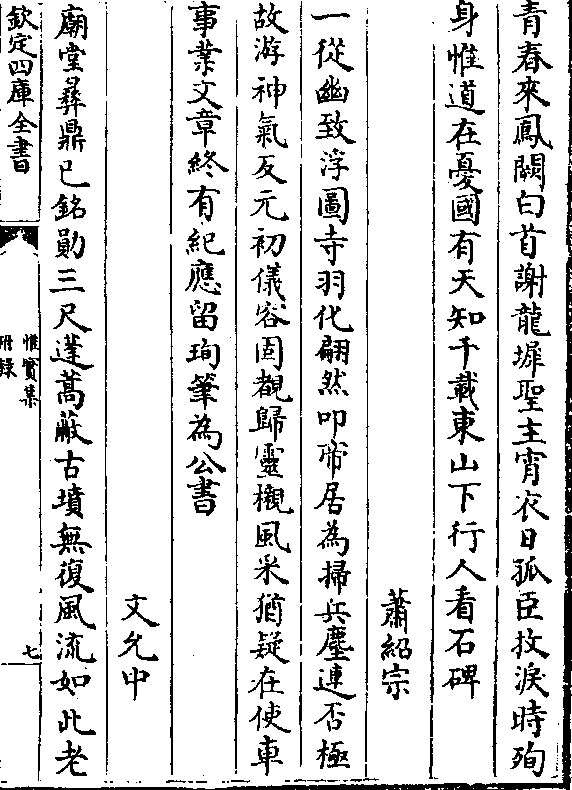 青春來鳳闕白首謝龍墀聖主宵衣日孤臣抆淚時殉
身惟道在憂國有天知千載東山下行人看石碑
蕭紹宗
一從幽致浮圖寺羽化翩然叩帝居為掃兵塵連否極
故游神氣反元初儀容固覩歸靈櫬風采猶疑在使車
事業文章終有紀應留珣筆為公書
文允中
廟堂彛鼎已銘勛三尺蓬蒿蔽古墳無復風流如此老
欽定四庫全書
惟實集
附錄
七